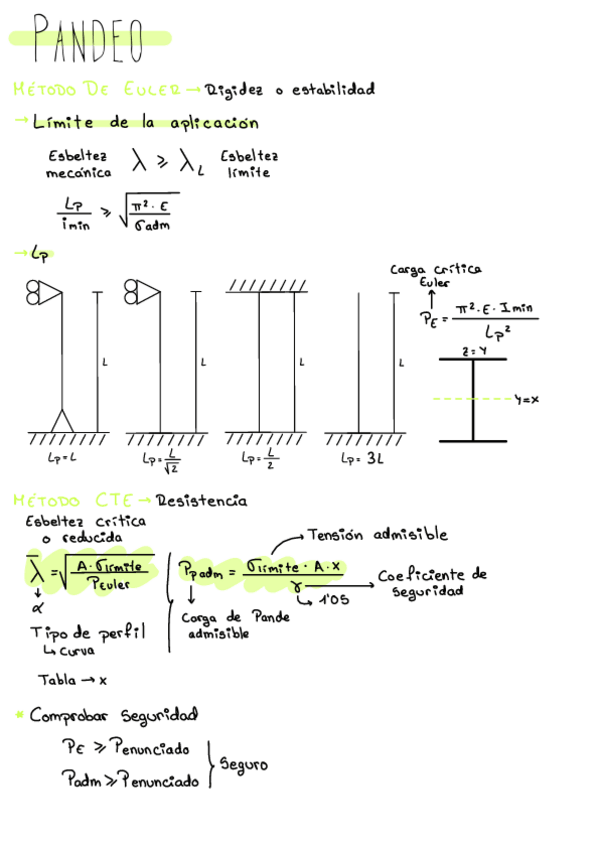 PANDEO
MÉTODO DE EULER → Rigidez o estabilidad
→ Límite de la aplicación
Esbeltez mecánica λ ⩾ λL Esbeltez límite
Lp / imin ⩾ √(π²·E / σadm)
→ Lp
Carga crítica
Euler
PE = π²·E·Imin / Lp²
L
L
L
L
z=Y
Y=X
Lp=L
Lp=L/√2
Lp=L/2
Lp= 3L
MÉTODO CTE → Resistencia
Esbeltez crítica
o reducida
λ̄ = √(A·σlímite / PEuler)
α
Tipo de perfil
↳ curva
Tabla → x
Tensión admisible
Ppadm = σlímite · A · x / γ
Coeficiente de
seguridad
↳ 1'05
Carga de Pande
admisible
* Comprobar seguridad
PE ⩾ Penunciado
Padm ⩾ Penunciado
Seguro